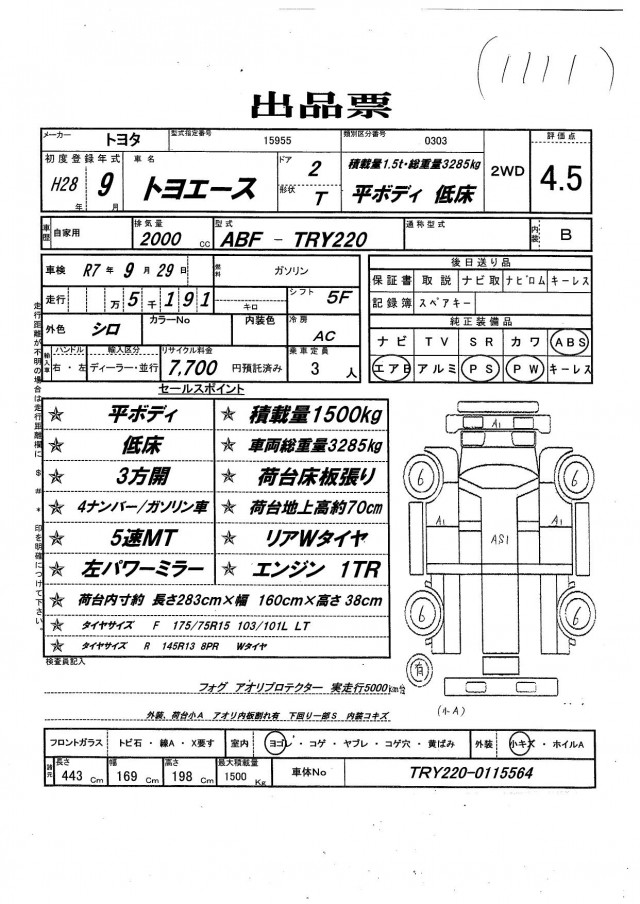 (1111)
出品票
メーカー トヨタ 型式指定番号 15955 類別区分番号 0303 2WD 評価点 4.5
初度登録年式 H28年 9月 車名 トヨエース ドア 2 形状 T 積載量1.5t・総重量3285kg 平ボディ 低床
車歴 自家用 排気量 2000 cc 型式 ABF － TRY220 通称型式 内装 B
車検 R7年 9月 29日 燃料 ガソリン
走行 万5千191 キロ シフト 5F
外色 シロ カラーNo 内装色 冷房 AC
輸入車 ハンドル 右・左 輸入区分 ディーラー・並行 リサイクル料金 7,700 円預託済み 乗車定員 3 人
後日送り品
保証書 取説 ナビ取 ナビロム キーレス
記録簿 スペアキー
純正装備品
ナビ TV SR カワ ABS
エアB アルミ PS PW キーレス
走行距離が不明の場合は走行距離欄に $ # * 印を明確につけて下さい。
セールスポイント
☆ 平ボディ ☆ 積載量1500kg
☆ 低床 ☆ 車両総重量3285kg
☆ 3方開 ☆ 荷台床板張り
☆ 4ナンバー/ガソリン車 ☆ 荷台地上高約70cm
☆ 5速MT ☆ リアWタイヤ
☆ 左パワーミラー ☆ エンジン 1TR
☆ 荷台内寸約 長さ283cm×幅 160cm×高さ38cm
☆ タイヤサイズ F 175/75R15 103/101L LT
☆ タイヤサイズ R 145R13 8PR Wタイヤ
A1
6 6
A1 A1
AS1
6 6
有
(小A)
検査員記入
フォグ アオリプロテクター 実走行5000km台
外装、荷台小A アオリ内板割れ有 下回り一部S 内装コキズ
フロントガラス トビ石・線A・X要す 室内 ヨゴレ・コゲ・ヤブレ・コゲ穴・黄ばみ 外装 小キズ・ホイルA
諸元 長さ 443 Cm 幅 169 Cm 高さ 198 Cm 最大積載量 1500 Kg 車体No TRY220-0115564